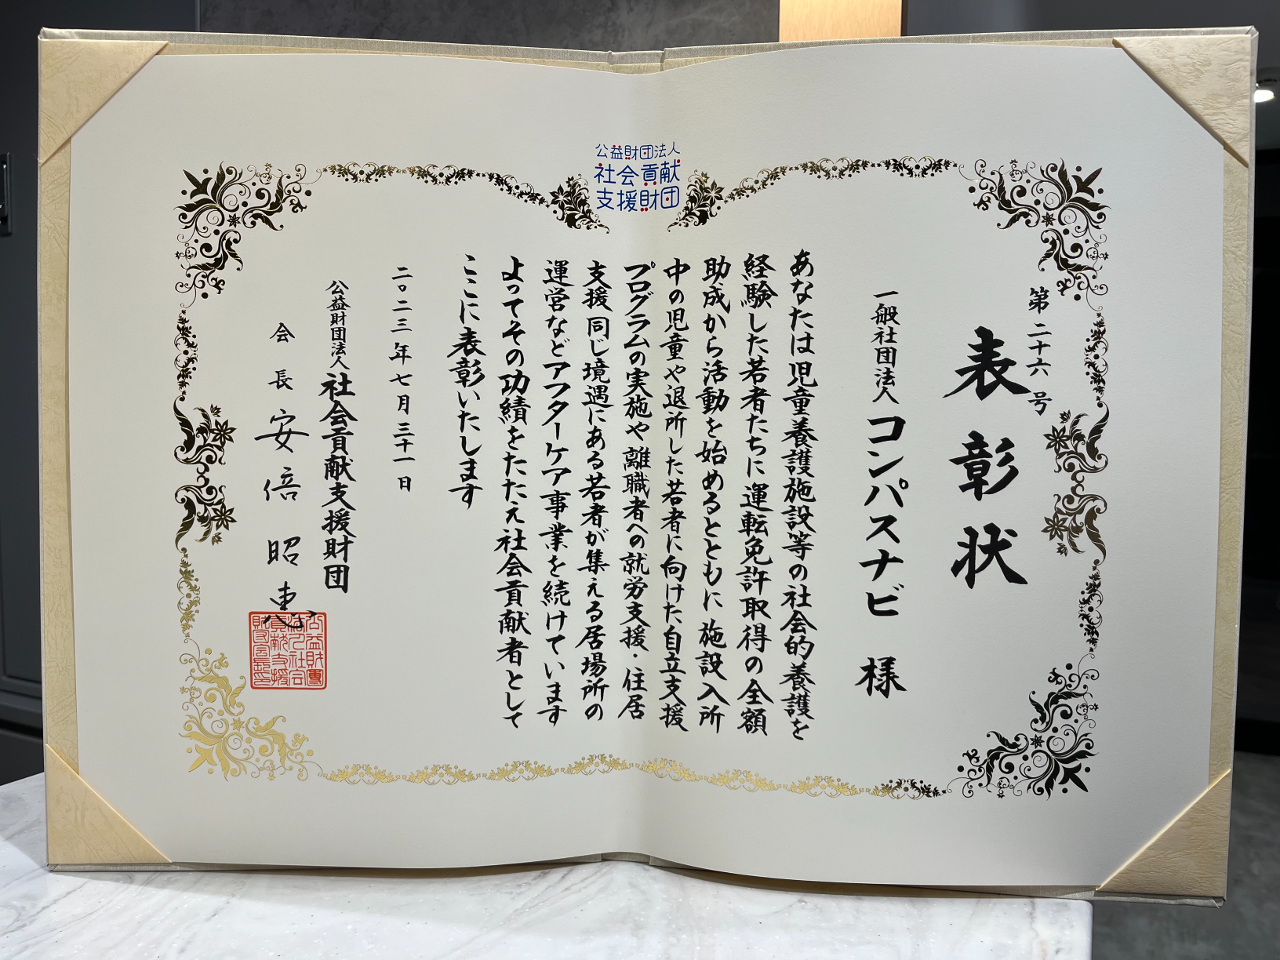 公益財団法人
社会貢献
支援財団
第二十六号
表彰状
一般社団法人 コンパスナビ 様
あなたは児童養護施設等の社会的養護を
経験した若者たちに運転免許取得の全額
助成から活動を始めるとともに施設入所
中の児童や退所した若者に向けた自立支援
プログラムの実施や離職者への就労支援・住居
支援同じ境遇にある若者が集える居場所の
運営などアフターケア事業を続けています
よってその功績をたたえ社会貢献者として
ここに表彰いたします
二〇二三年七月三十一日
公益財団法人 社会貢献支援財団
会長 安倍昭恵